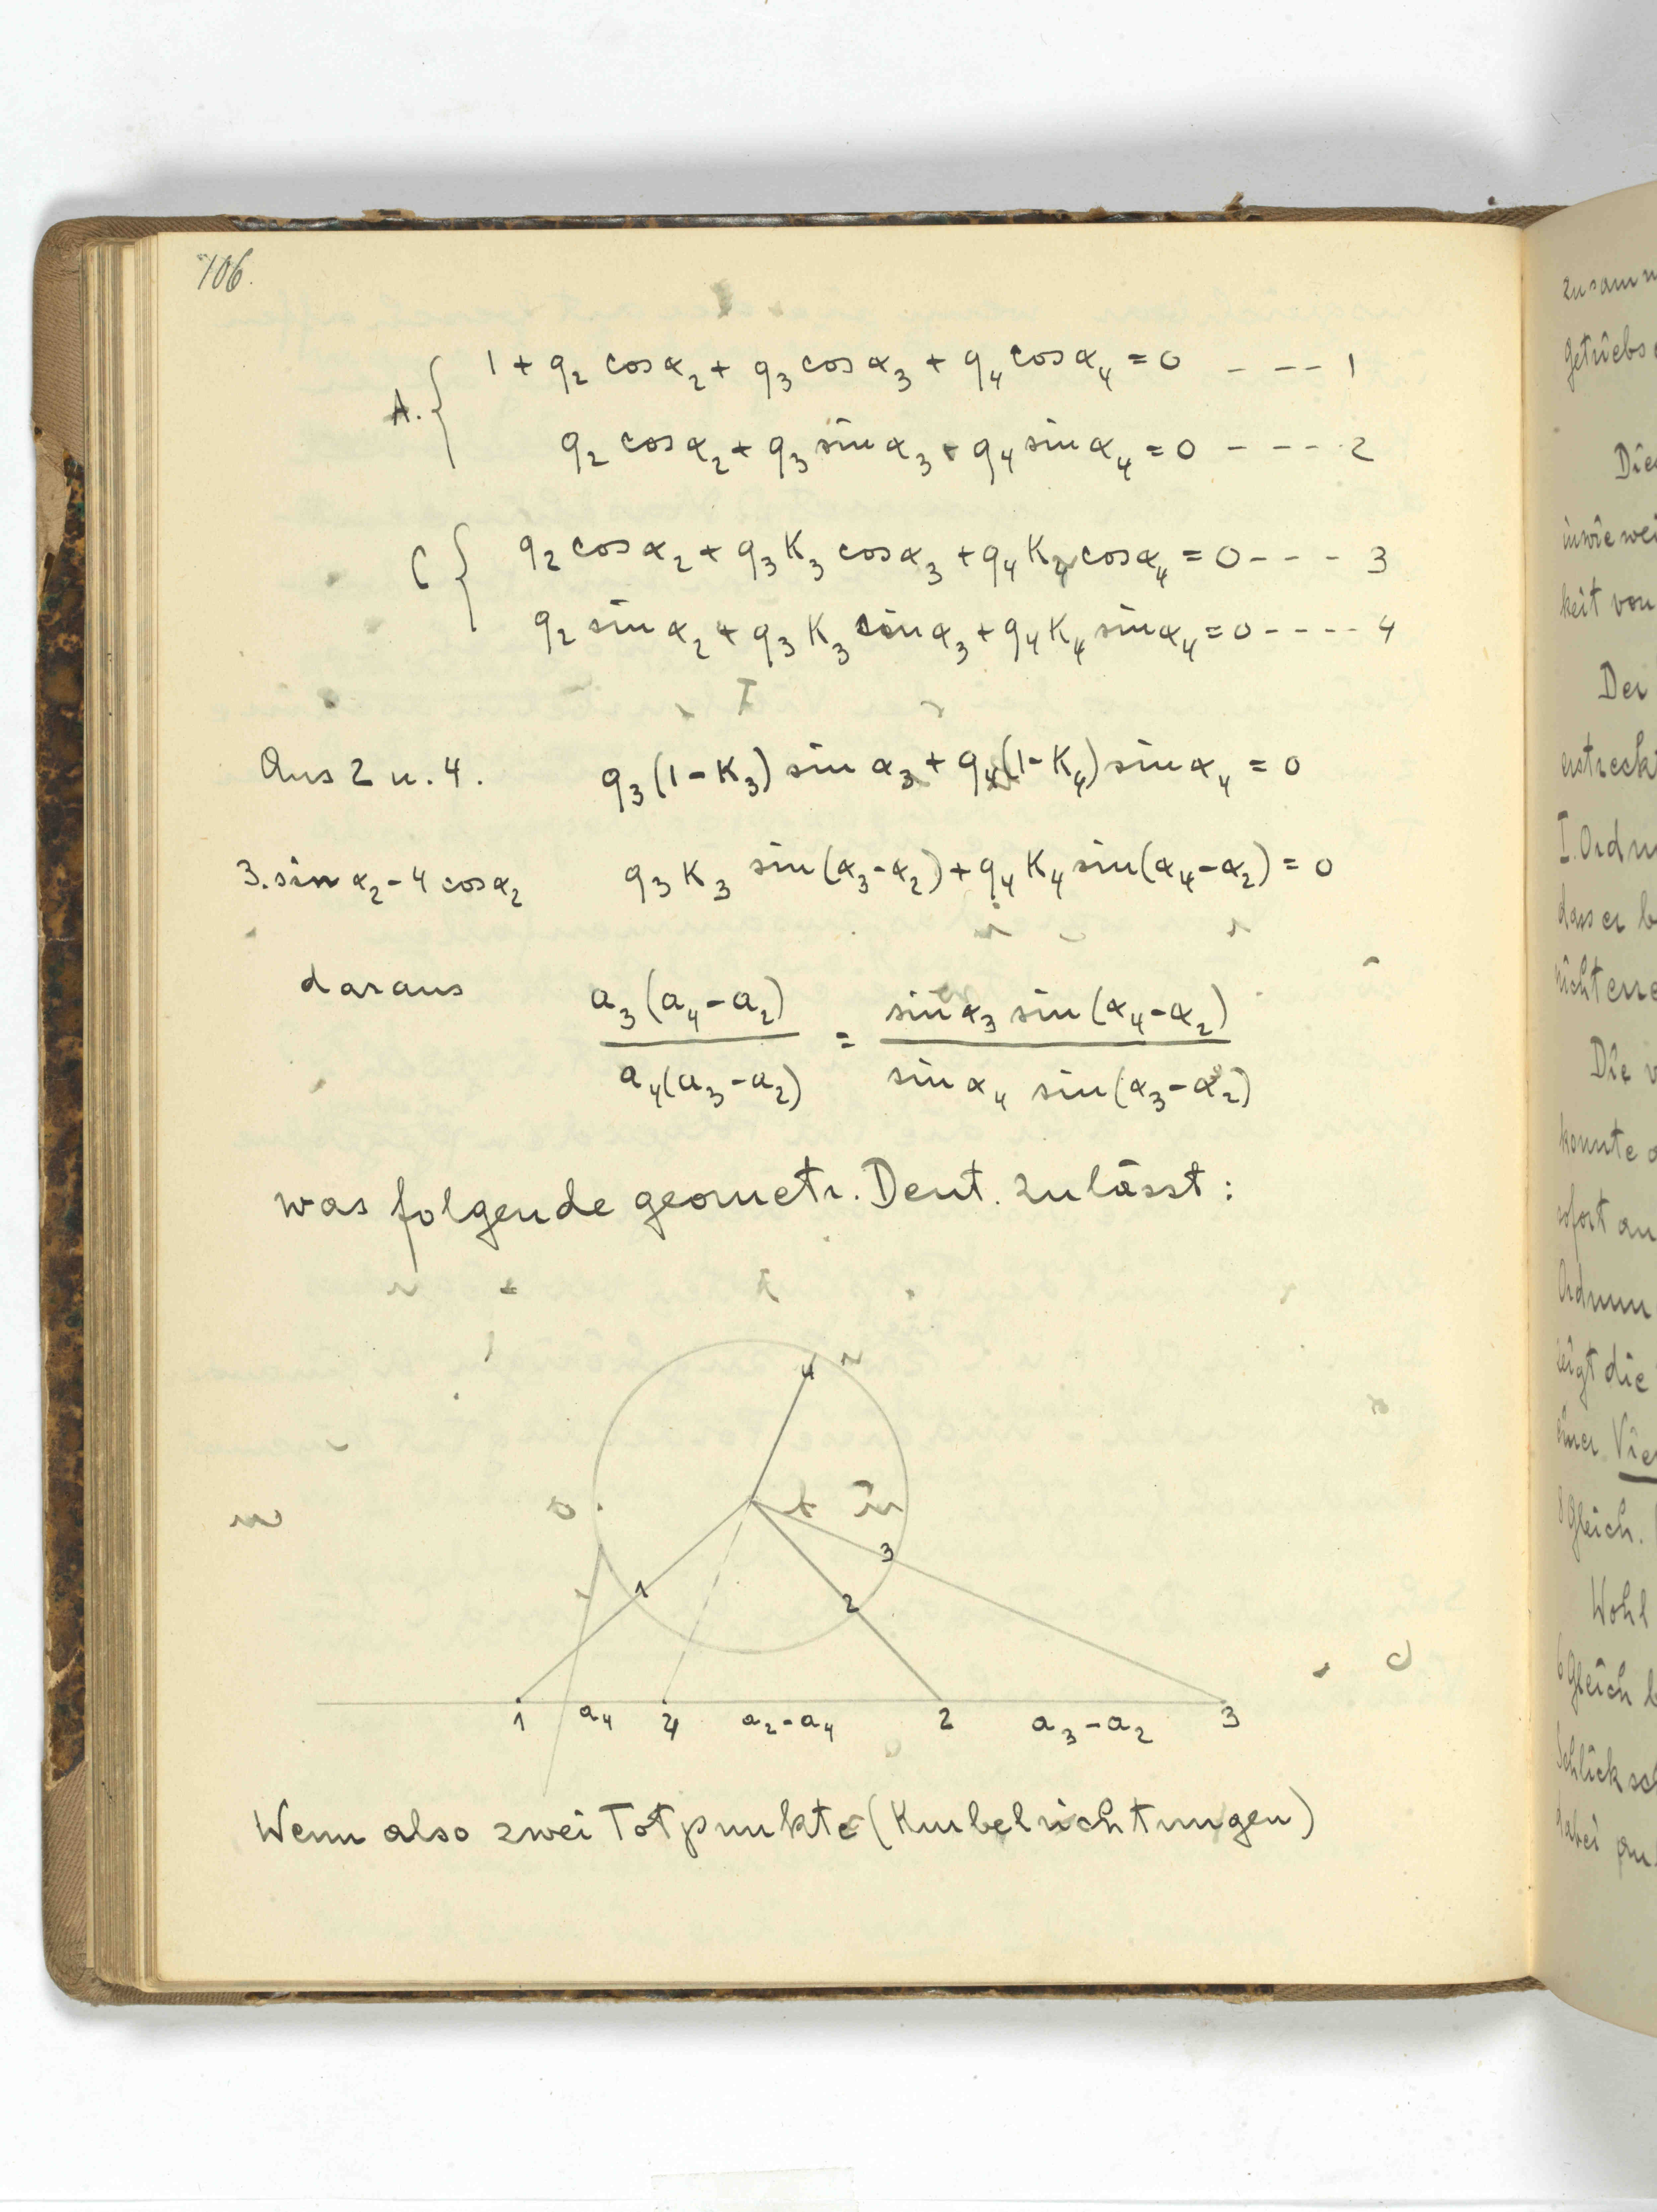 106.
A. { 1 + q₂ cos α₂ + q₃ cos α₃ + q₄ cos α₄ = 0 - - - 1
q₂ cos α₂ + q₃ sin α₃ + q₄ sin α₄ = 0 - - - - 2
C { q₂ cos α₂ + q₃ K₃ cos α₃ + q₄ K₄ cos α₄ = 0 - - - 3
q₂ sin α₂ + q₃ K₃ sin α₃ + q₄ K₄ sin α₄ = 0 - - - - 4
Aus 2 u. 4. q₃ (1 - K₃) sin α₃ + q₄ (1 - K₄) sin α₄ = 0
3. sin α₂ - 4 cos α₂ q₃ K₃ sin (α₃ - α₂) + q₄ K₄ sin (α₄ - α₂) = 0
daraus a₃ (a₄ - a₂) / a₄ (a₃ - a₂) = sin α₃ sin (α₄ - α₂) / sin α₄ sin (α₃ - α₂)
was folgende geometr. Deut. zulässt:
4
3
1 2
1 a₄ 4 a₂ - a₄ 2 a₃ - a₂ 3
Wenn also zwei Totpunkte (Kurbelrichtungen)
zusamm
getriebs
Die
inwiewei
keit von
Der
erstreckt
I. Ordn
dass er b
nicht erre
Die v
konnte
sofort an
Ordnun
zeigt die
einer Vie
8 Gleich.
Wohl
6 Gleich b
Schlick sch
dabei